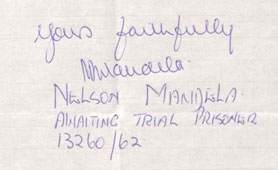 Yours faithfully
NMandela.
NELSON MANDELA.
AWAITING TRIAL PRISONER
13260/62